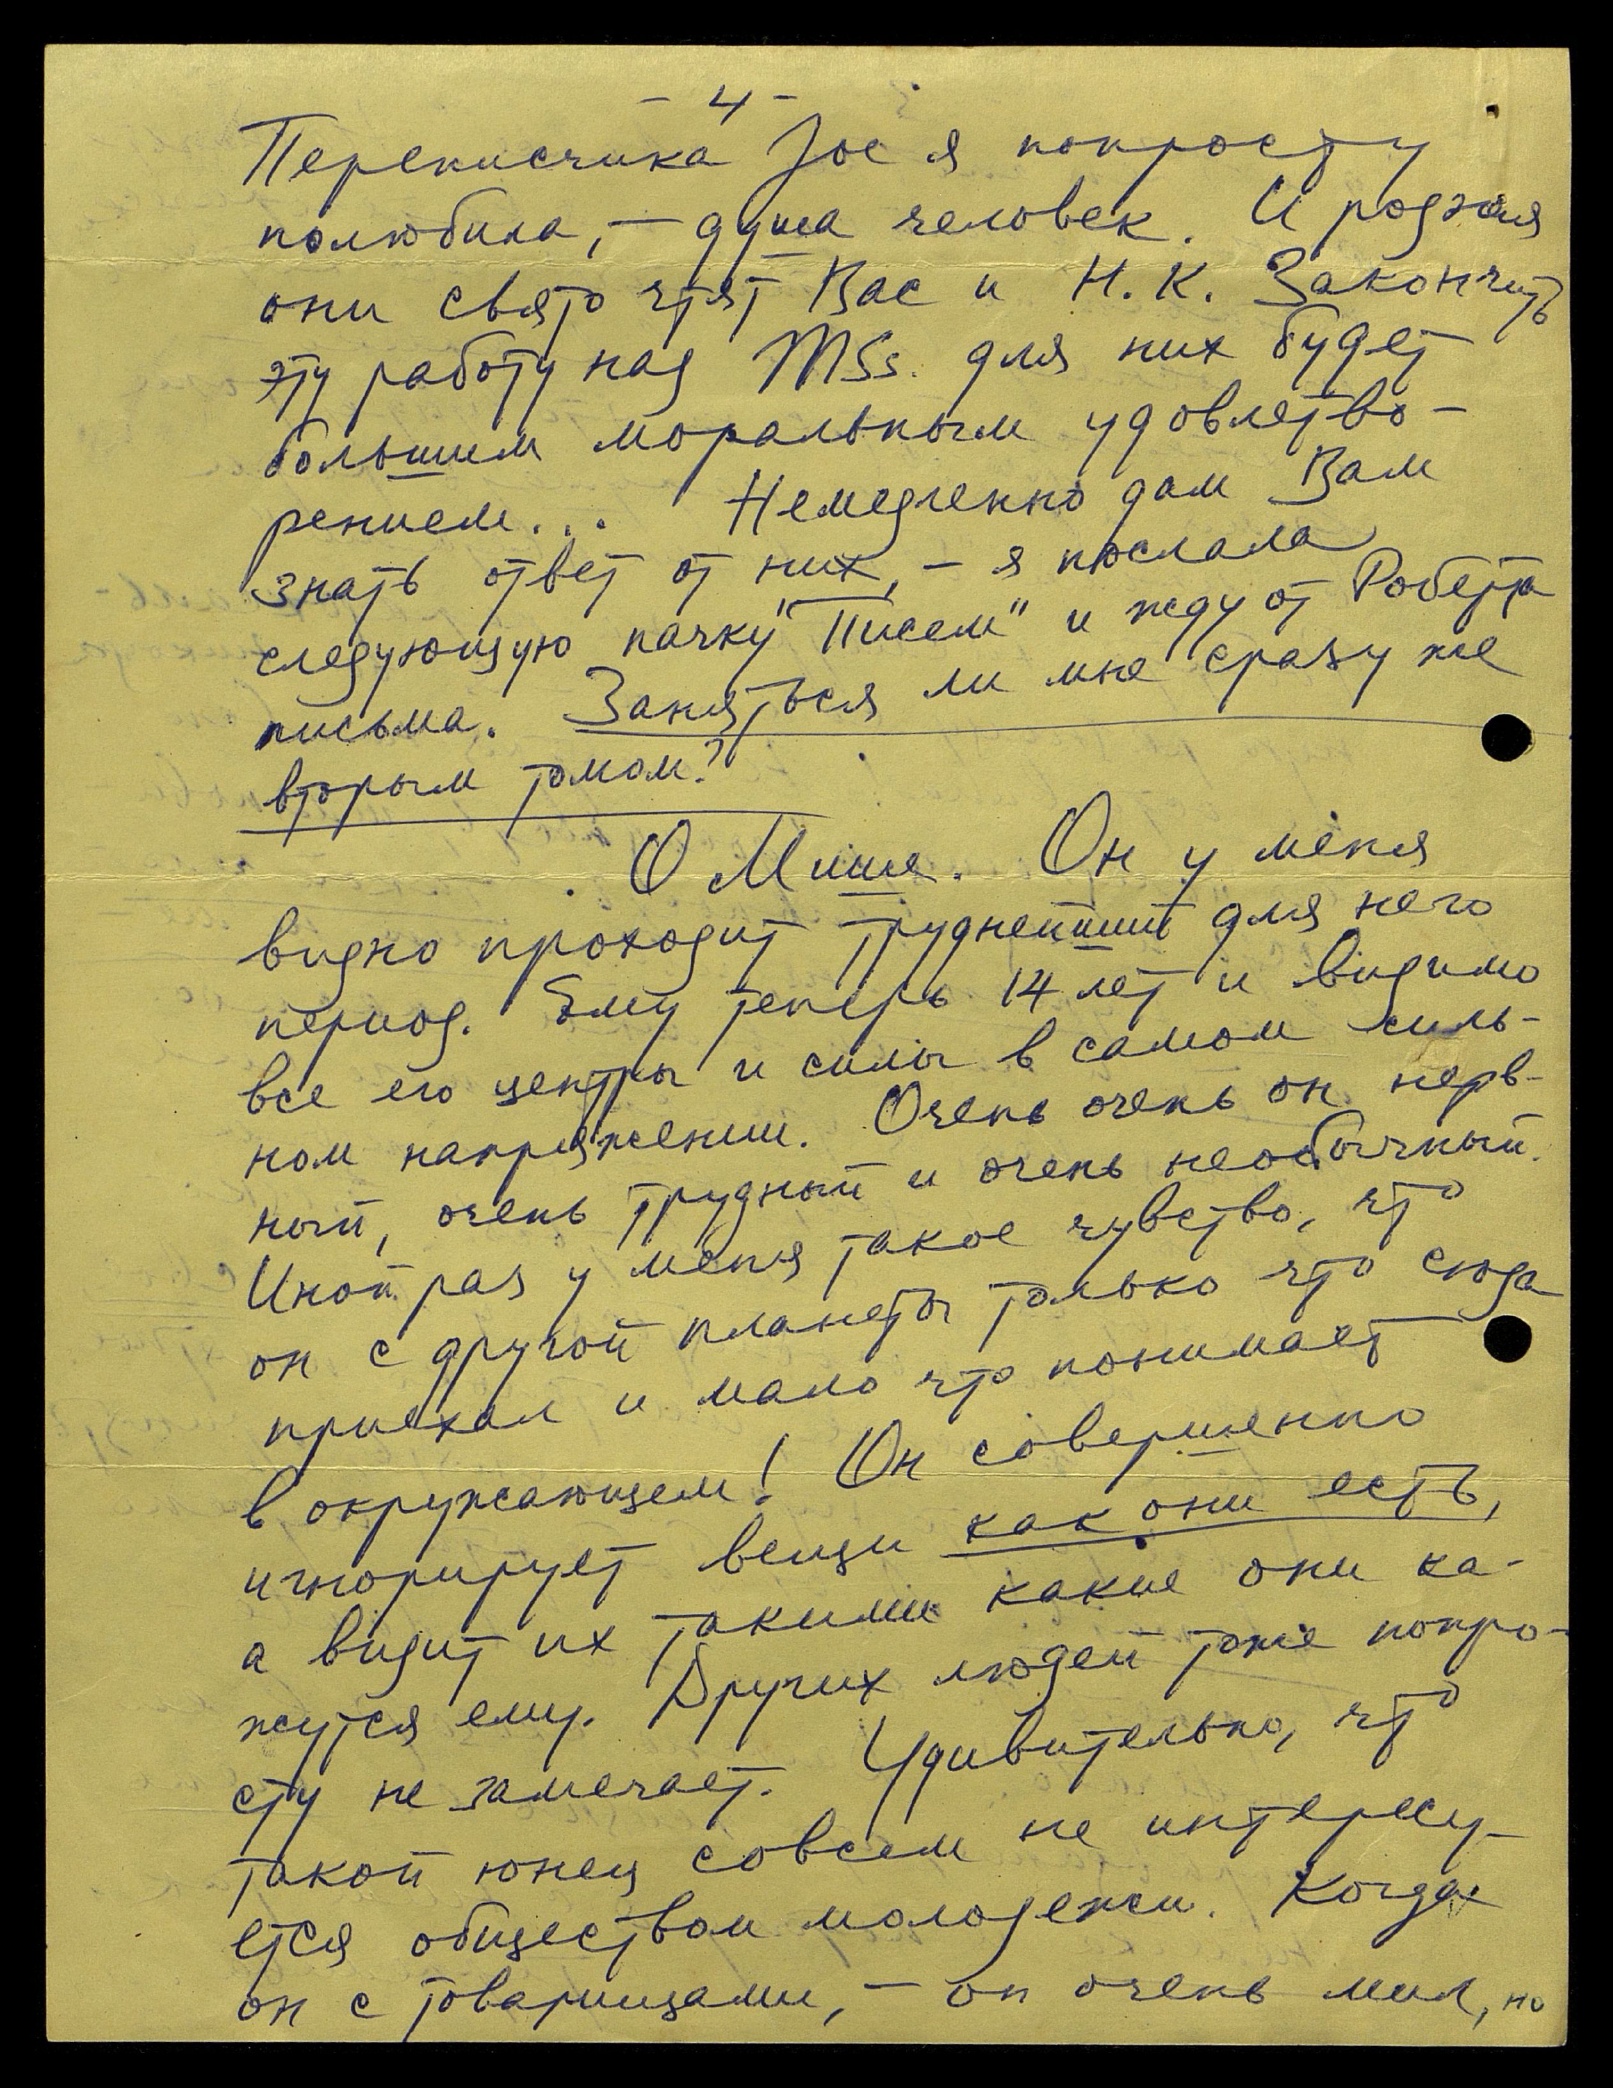 - 4 -
Переписчика Joe я попросту
полюбила, - душа человек. И
они свято чтят Вас и Н.К. Закончить
эту работу над MSs. для них будет
большим моральным удовлетво-
рением... Немедленно дам Вам
знать ответ от них, - я послала
следующую пачку "Писем" и жду от Роберта
письма. Заняться ли мне сразу же
вторым томом?
О Мише. Он у меня
видно проходит труднейший для него
период. Ему теперь 14 лет и видимо
все его центры и силы в самом силь-
ном напряжении. Очень очень он нерв-
ный, очень трудный и очень необычный.
Иной раз у меня такое чувство, что
он с другой планеты только что сюда
приехал и мало что понимает
в окружающем! Он совершенно
игнорирует вещи как они есть,
а видит их такими какие они ка-
жутся ему. Других людей тоже попро-
сту не замечает. Удивительно, что
такой юнец совсем не интересу-
ется обществом молодежи. Когда
он с товарищами, - он очень мил, но